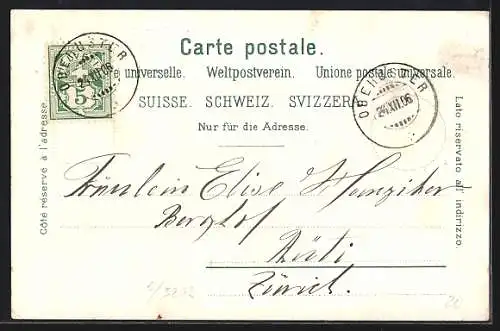 Carte postale.
Union postale universelle. Weltpostverein. Unione postale universale.
SUISSE. SCHWEIZ. SVIZZERA.
Nur für die Adresse.
Côté réservé à l'adresse.
Lato riservato all' indirizzo.
5
OBERUSTER
24.XII.06
OBERUSTER
24.XII.06
Fräulein Elise Hunziker
Berghof
Rüti
Zürich.